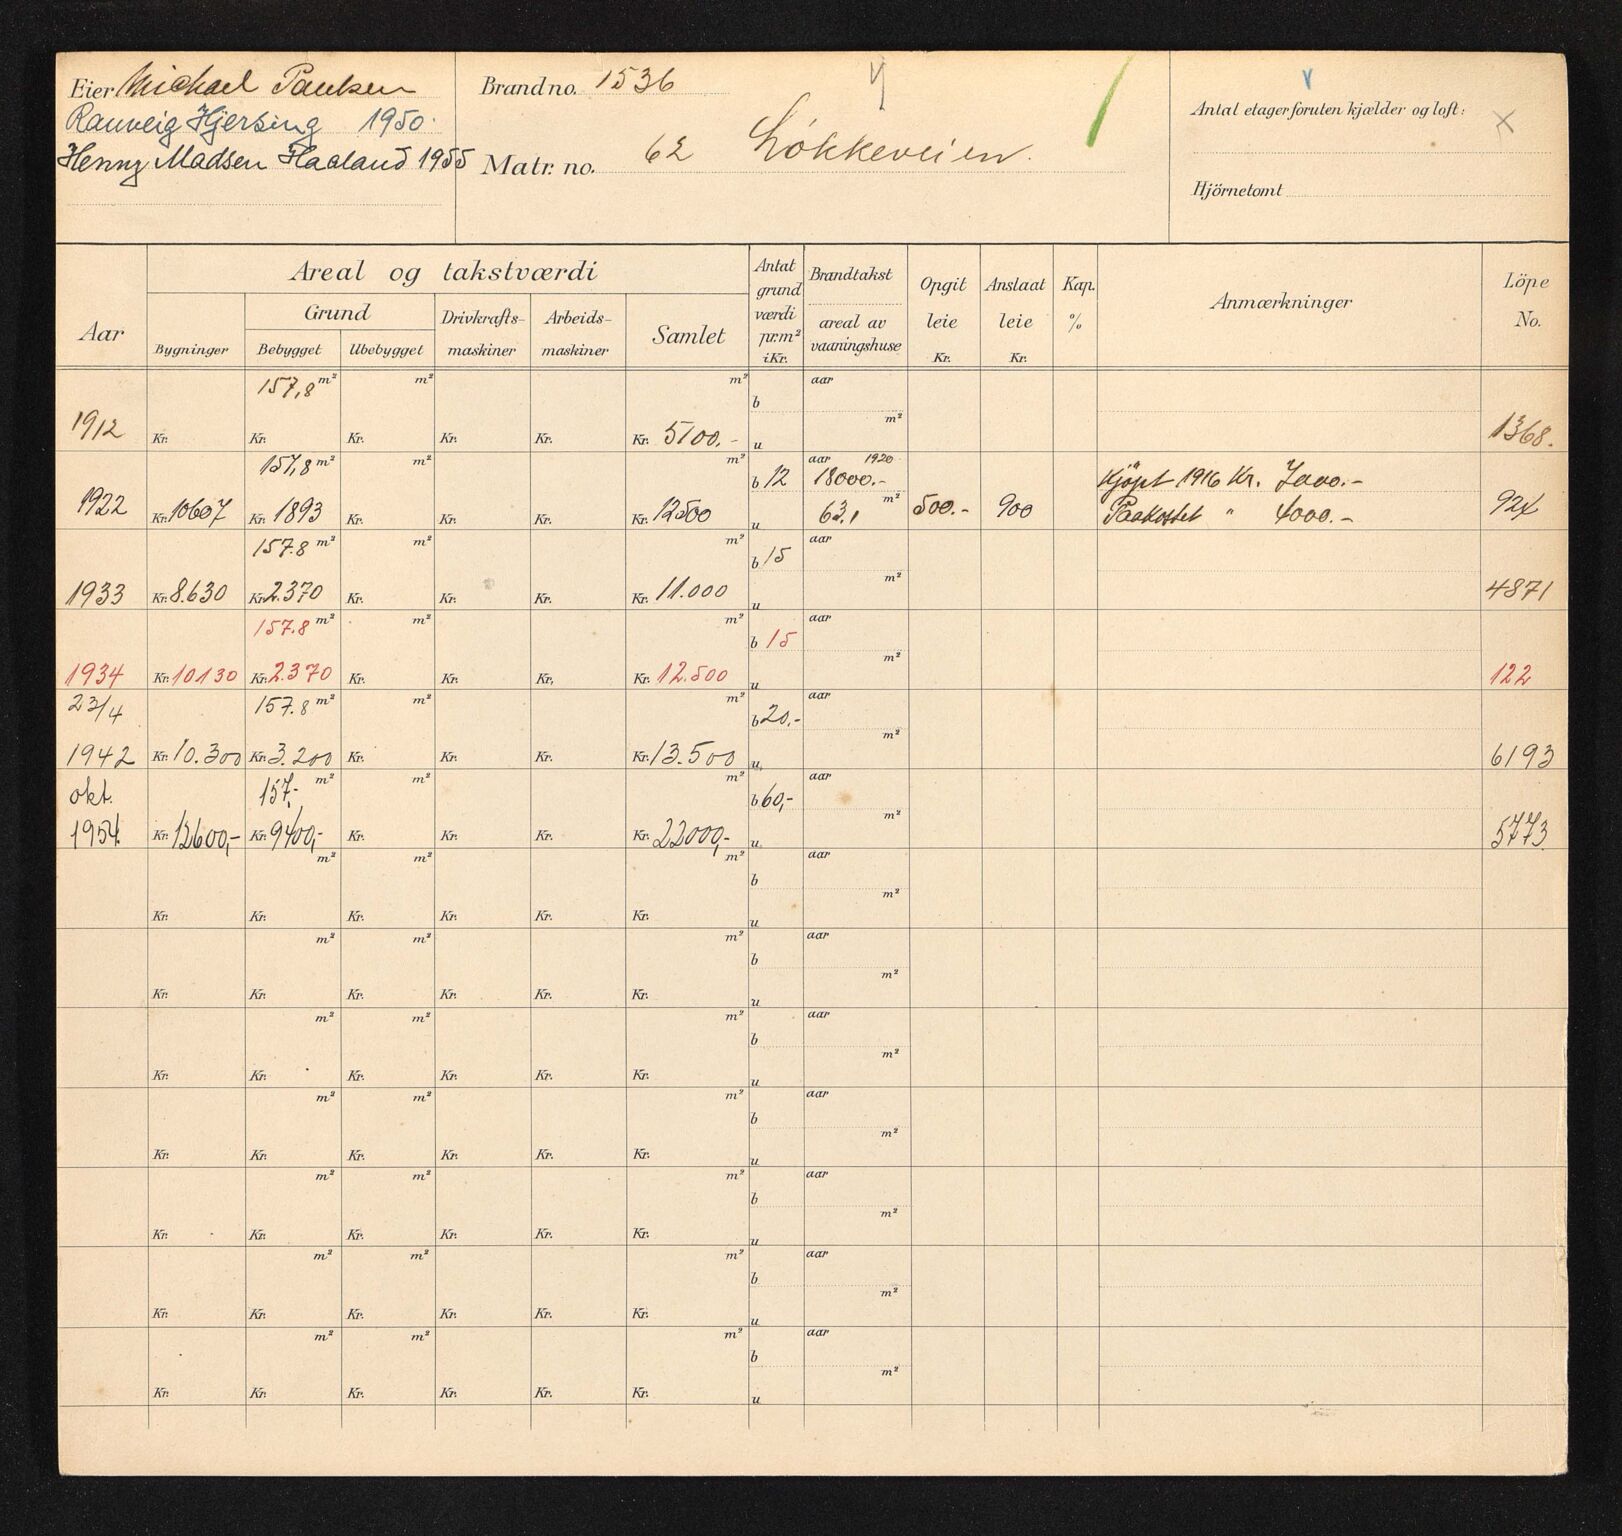 Eier Michael Paulsen
Rannveig Hjersing 1950.
Henny Madsen Haaland 1955
Brand no. 1536
Matr. no. 62 Løkkeveien.
Antal etager foruten kjælder og loft: ×
Hjörnetomt
Aar
Areal og takstværdi
Bygninger
Grund
Bebygget Ubebygget
Drivkrafts-maskiner
Arbeids-maskiner
Samlet
Antat grund værdi pr. m² i Kr.
Brandtakst
areal av vaaningshuse
Opgit leie Kr.
Anslaat leie Kr.
Kap. %
Anmærkninger
Löpe No.
157,8 m² m² m² b aar
1912 Kr. Kr. Kr. Kr. Kr. Kr. 5100.- u m² 1368.
157,8 m² m² m² b 12 aar 1920 18000.- Kjöpt 1916 Kr. 7000.-
1922 Kr. 10607 Kr. 1893 Kr. Kr. Kr. Kr. 12500 u 63,1 m² 500.- 900 Paakostet " 4000.- 924
157.8 m² m² m² b 15 aar
1933 Kr. 8.630 Kr. 2.370 Kr. Kr. Kr. Kr. 11.000 u m² 4871
157.8 m² m² m² b 15 aar
1934 Kr. 10130 Kr. 2.370 Kr. Kr. Kr. Kr. 12.500 u m² 122
23/4 157.8 m² m² m² b 20.- aar
1942 Kr. 10.300 Kr. 3.200 Kr. Kr. Kr. Kr. 13.500 u m² 6193
okt. 157,- m² m² m² b 60,- aar
1954 Kr. 12600,- Kr. 9400,- Kr. Kr. Kr. Kr. 22000,- u m² 5773
m² m² m² b aar
Kr. Kr. Kr. Kr. Kr. Kr. u m²
m² m² m² b aar
Kr. Kr. Kr. Kr. Kr. Kr. u m²
m² m² m² b aar
Kr. Kr. Kr. Kr. Kr. Kr. u m²
m² m² m² b aar
Kr. Kr. Kr. Kr. Kr. Kr. u m²
m² m² m² b aar
Kr. Kr. Kr. Kr. Kr. Kr. u m²
m² m² m² b aar
Kr. Kr. Kr. Kr. Kr. Kr. u m²
m² m² m² b aar
Kr. Kr. Kr. Kr. Kr. Kr. u m²